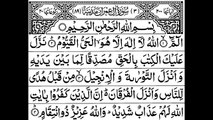 بِسْمِ اللّٰهِ الرَّحْمٰنِ الرَّحِيْمِ
الٓمّٓ ۙ اللّٰهُ لَاۤ اِلٰهَ اِلَّا هُوَ الْحَیُّ الْقَیُّوْمُ ؕ نَزَّلَ
عَلَیْكَ الْكِتٰبَ بِالْحَقِّ مُصَدِّقًا لِّمَا بَیْنَ
یَدَیْهِ وَاَنْزَلَ التَّوْرٰىةَ وَالْاِنْجِیْلَ ۙ مِنْ قَبْلُ هُدًی
لِّلنَّاسِ وَاَنْزَلَ الْفُرْقَانَ ؕ اِنَّ الَّذِیْنَ كَفَرُوْا بِاٰیٰتِ
اللّٰهِ لَهُمْ عَذَابٌ شَدِیْدٌ ؕ وَاللّٰهُ عَزِیْزٌ ذُو انْتِقَامٍ